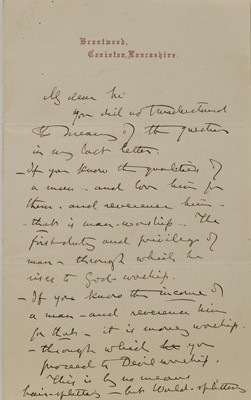 Brantwood,
Coniston, Lancashire.
My dear Sir
You did not understand
the meaning of the question
in my last letter.
– If you know the qualities of
a man – and love him for
them – and reverence him –
– that is man-worship. The
first duty and privilege of
man – through which he
rises to God-worship.
– If you know the income of
a man – and reverence him
for that – it is money worship.
– through which you
proceed to Devil worship.
This is by no means
hair-splitting – but World-splitting